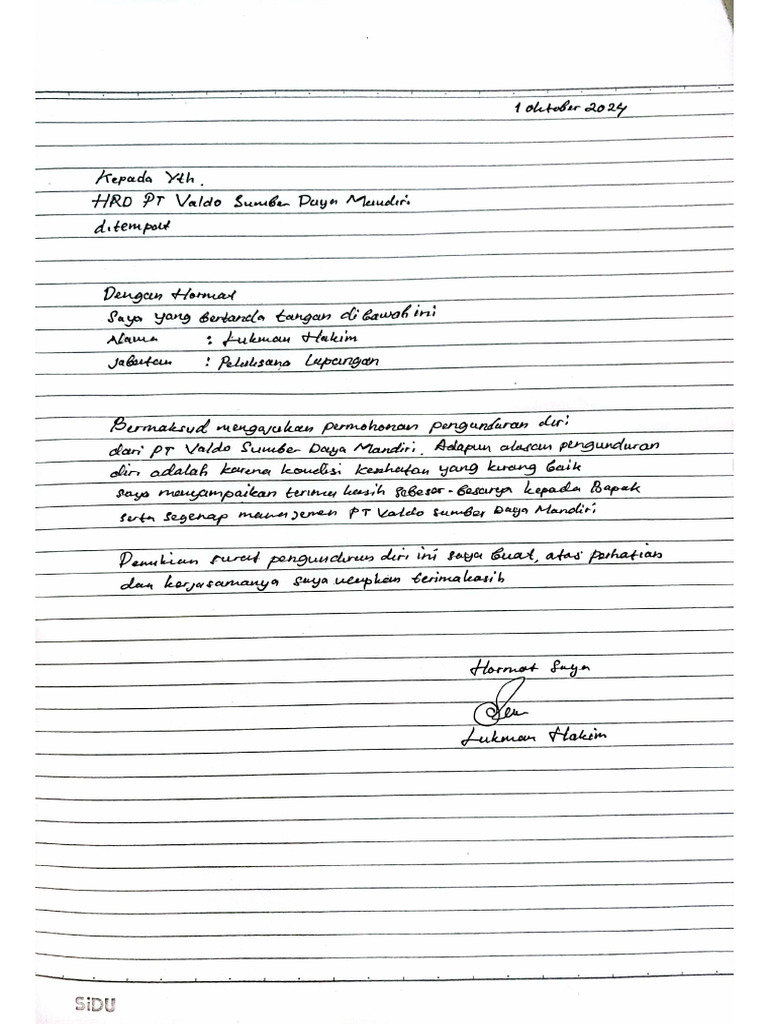 1 Oktober 2024
Kepada Yth.
HRD PT Valdo Sumber Daya Mandiri
ditempat
Dengan Hormat
Saya yang bertanda tangan dibawah ini
Nama : Lukman Hakim
Jabatan : Pelaksana Lapangan
Bermaksud mengajukan permohonan pengunduran diri
dari PT Valdo Sumber Daya Mandiri. Adapun alasan pengunduran
diri adalah karena kondisi kesehatan yang kurang baik
saya menyampaikan terima kasih sebesar-besarya kepada Bapak
serta segenap manajemen PT Valdo Sumber Daya Mandiri
Demikian surat pengunduran diri ini saya buat, atas perhatian
dan kerjasamanya saya ucapkan terimakasih
Hormat Saya
Lukman Hakim
SiDU